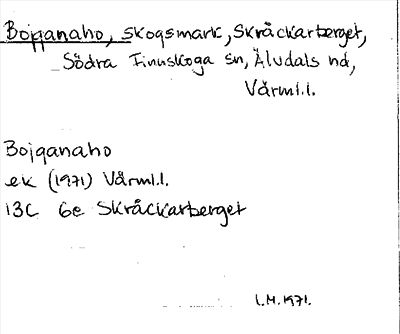 Bojganaho, skogsmark, Skråckarberget,
Södra Finnskoga sn, Älvdals hd,
Värml.l.
Bojganaho
ek (1971) Värml.l.
13C 6e Skråckarberget
L.M. 1971.